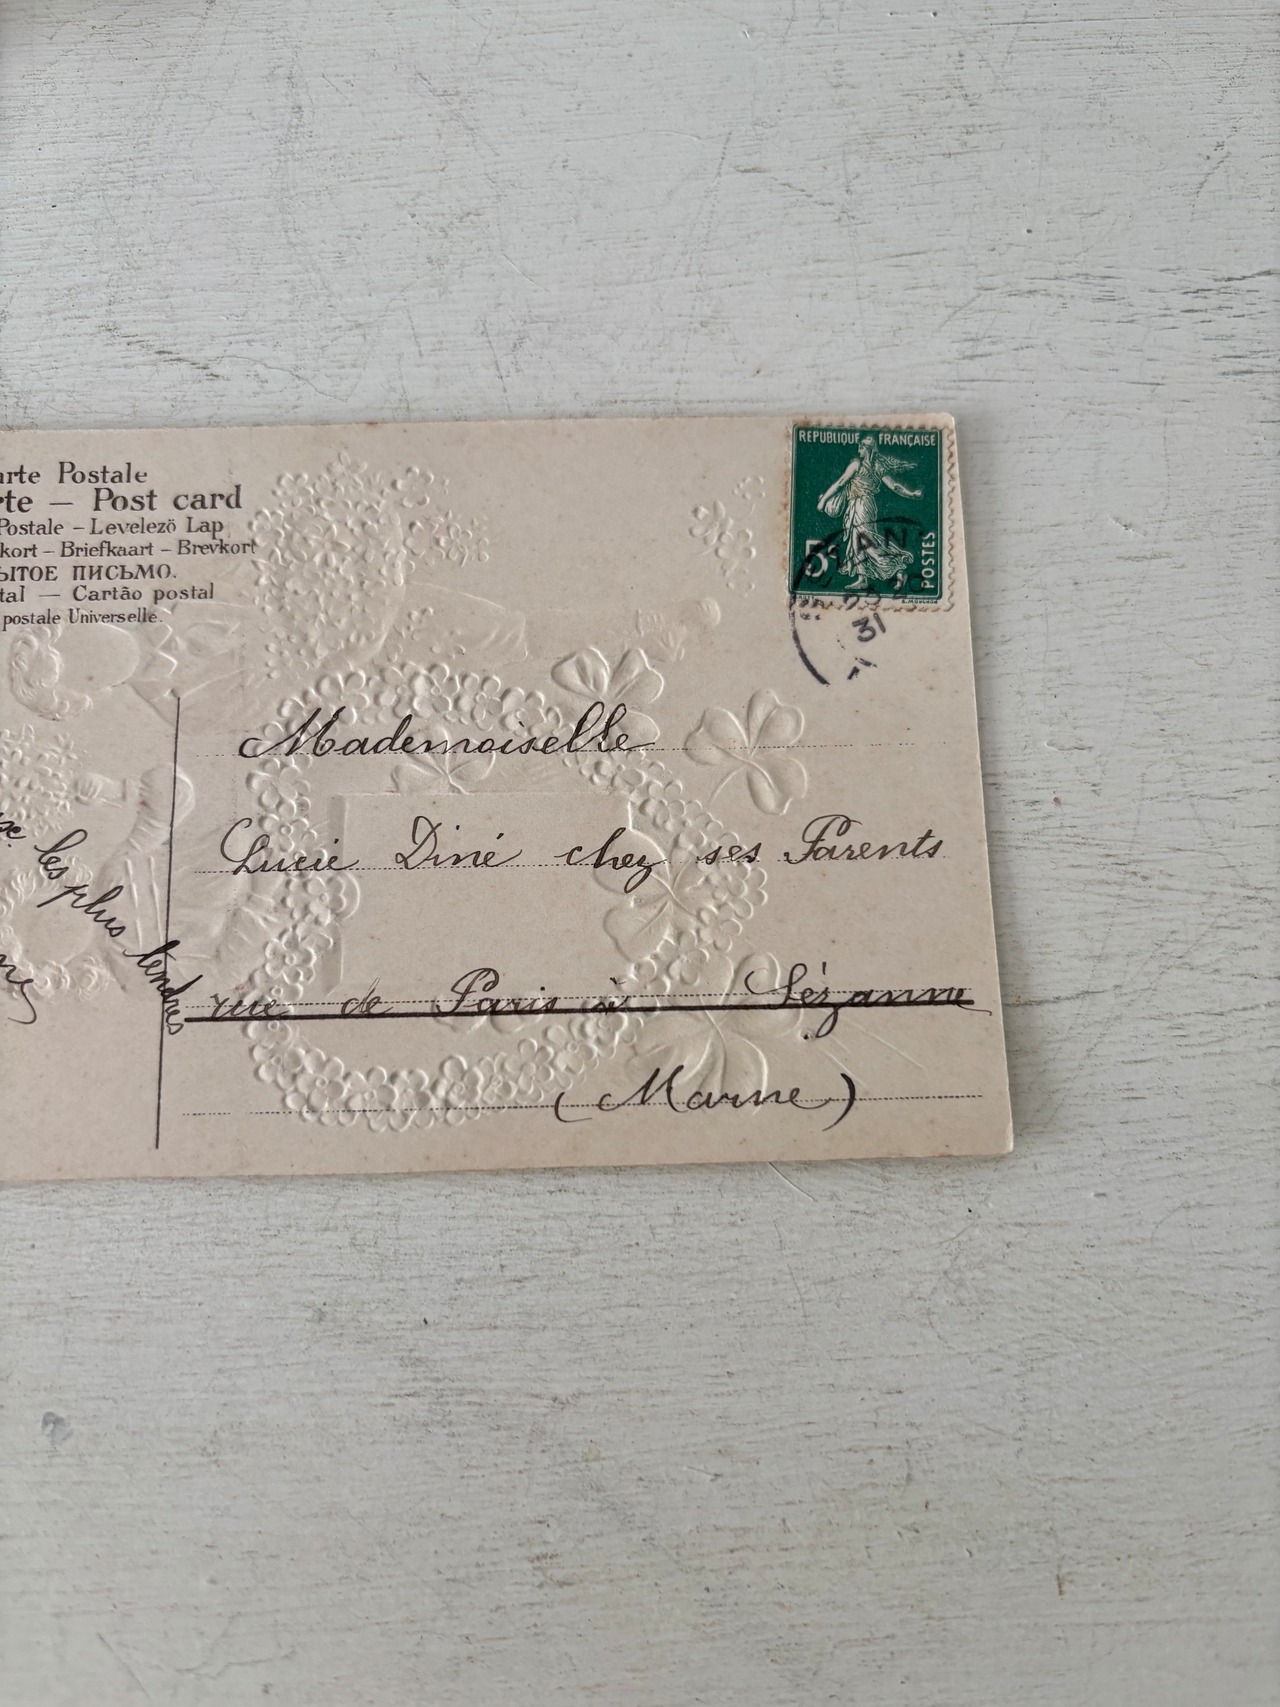 arte Postale
rte — Post card
Postale – Levelező Lap
kort – Briefkaart – Brevkort
ЫТОЕ ПИСЬМО.
tal — Cartão postal
postale Universelle.
REPUBLIQUE FRANÇAISE
5c
POSTES
31
Mademoiselle
Lucie Diné chez ses Parents
rue de Paris à Sézanne
(Marne)
les plus tendres